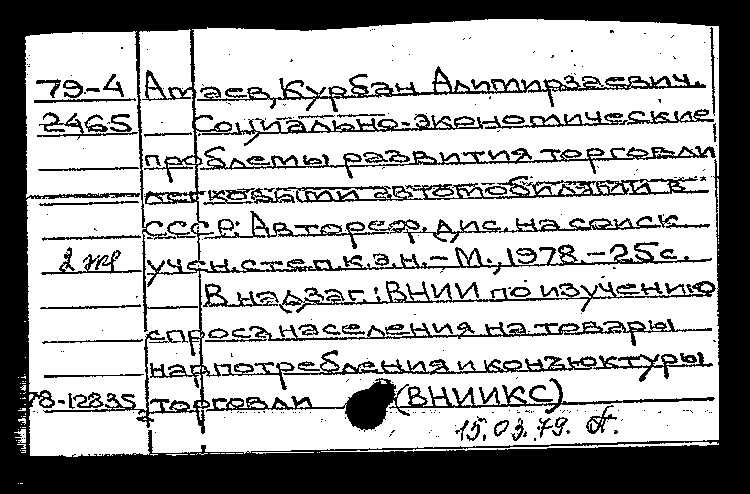 79-4 Атаев, Курбан Алитирзаевич.
2465 Социально-экономические
проблемы развития торговли
легковыми автомобилями в
СССР: Автореф. дис. на соиск
2 экз учен. степ. к.э.н. – М., 1978. – 25с.
В надзаг: ВНИИ по изучению
спроса населения на товары
нар потребления и конъюктуры
78-12835 торговли (ВНИИКС)
15.03.79.